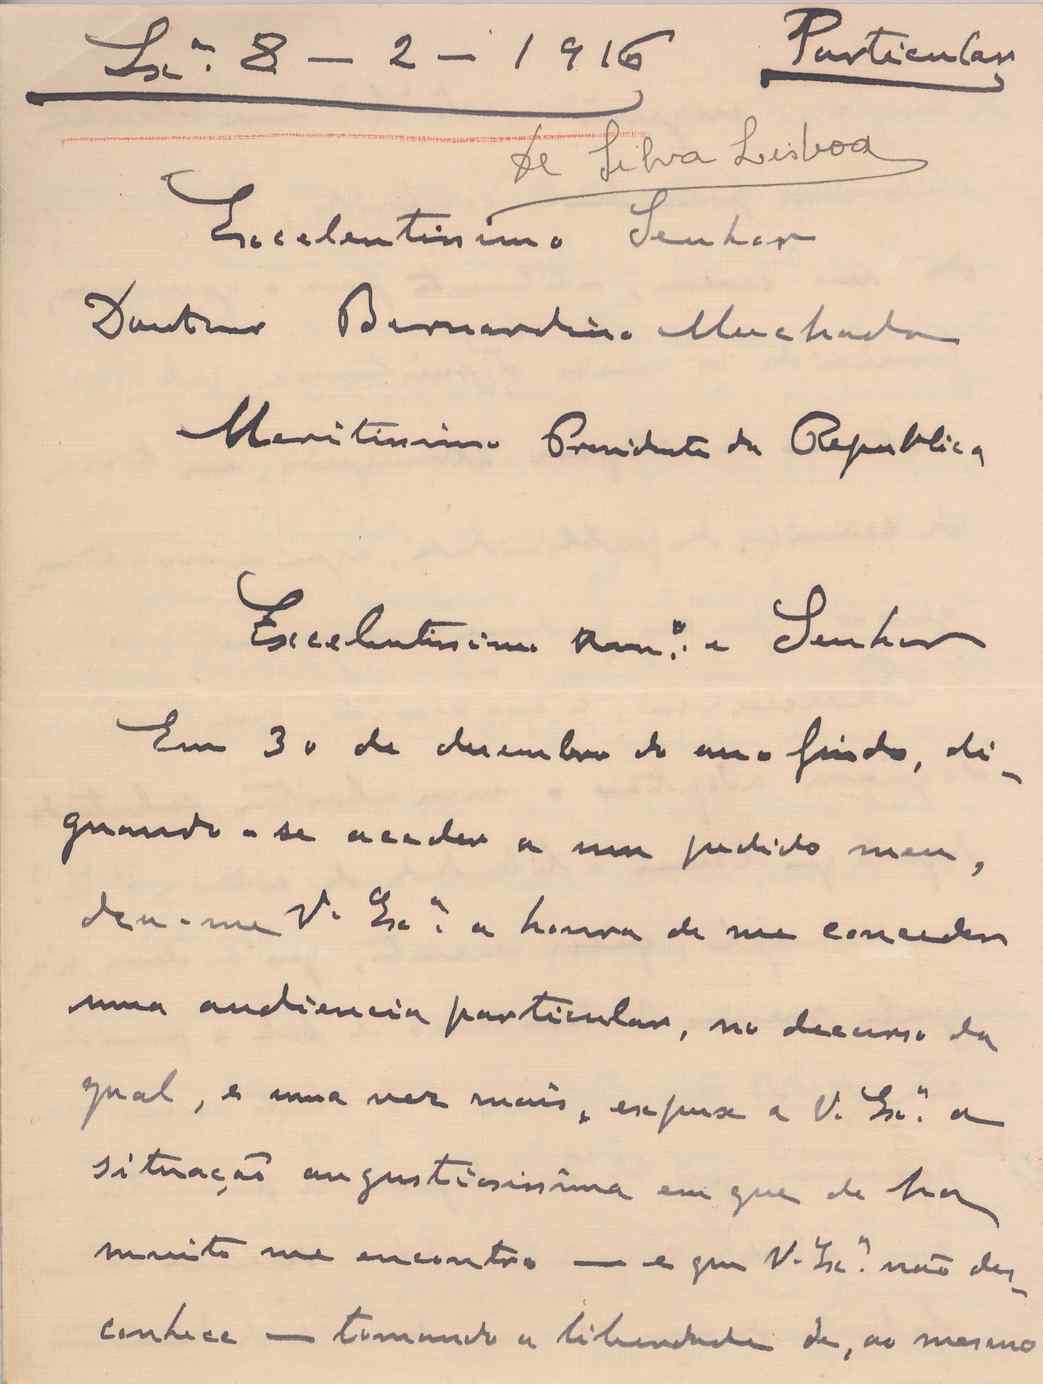 Lxª. 8 — 2 — 1916 Particular
de Silva Lisboa
Excelentissimo Senhor
Doutour Bernardino Machado
Meritissimo Presidente da Republica
Excelentissimo Amº. e Senhor
Em 30 de desembro do ano findo, di-
gnando-se aceder a um pedido meu,
deu-me V. Exª. a honra de me conceder
uma audiencia particular, no decurso da
qual, e uma vez mais, expuz a V. Exª. a
situação angustiosissima em que de ha
muito me encontro — e que V. Exª. não des-
conhece — tomando a liberdade de, ao mesmo